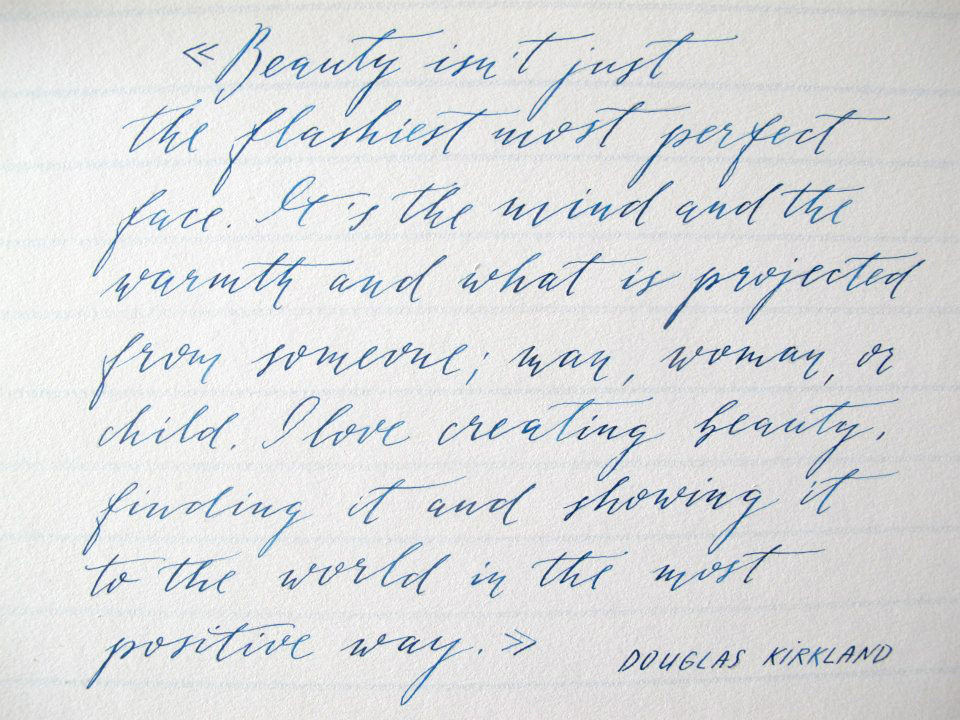 « Beauty isn't just
the flashiest most perfect
face. It's the mind and the
warmth and what is projected
from someone; man, woman, or
child. I love creating beauty,
finding it and showing it
to the world in the most
positive way. »
DOUGLAS KIRKLAND